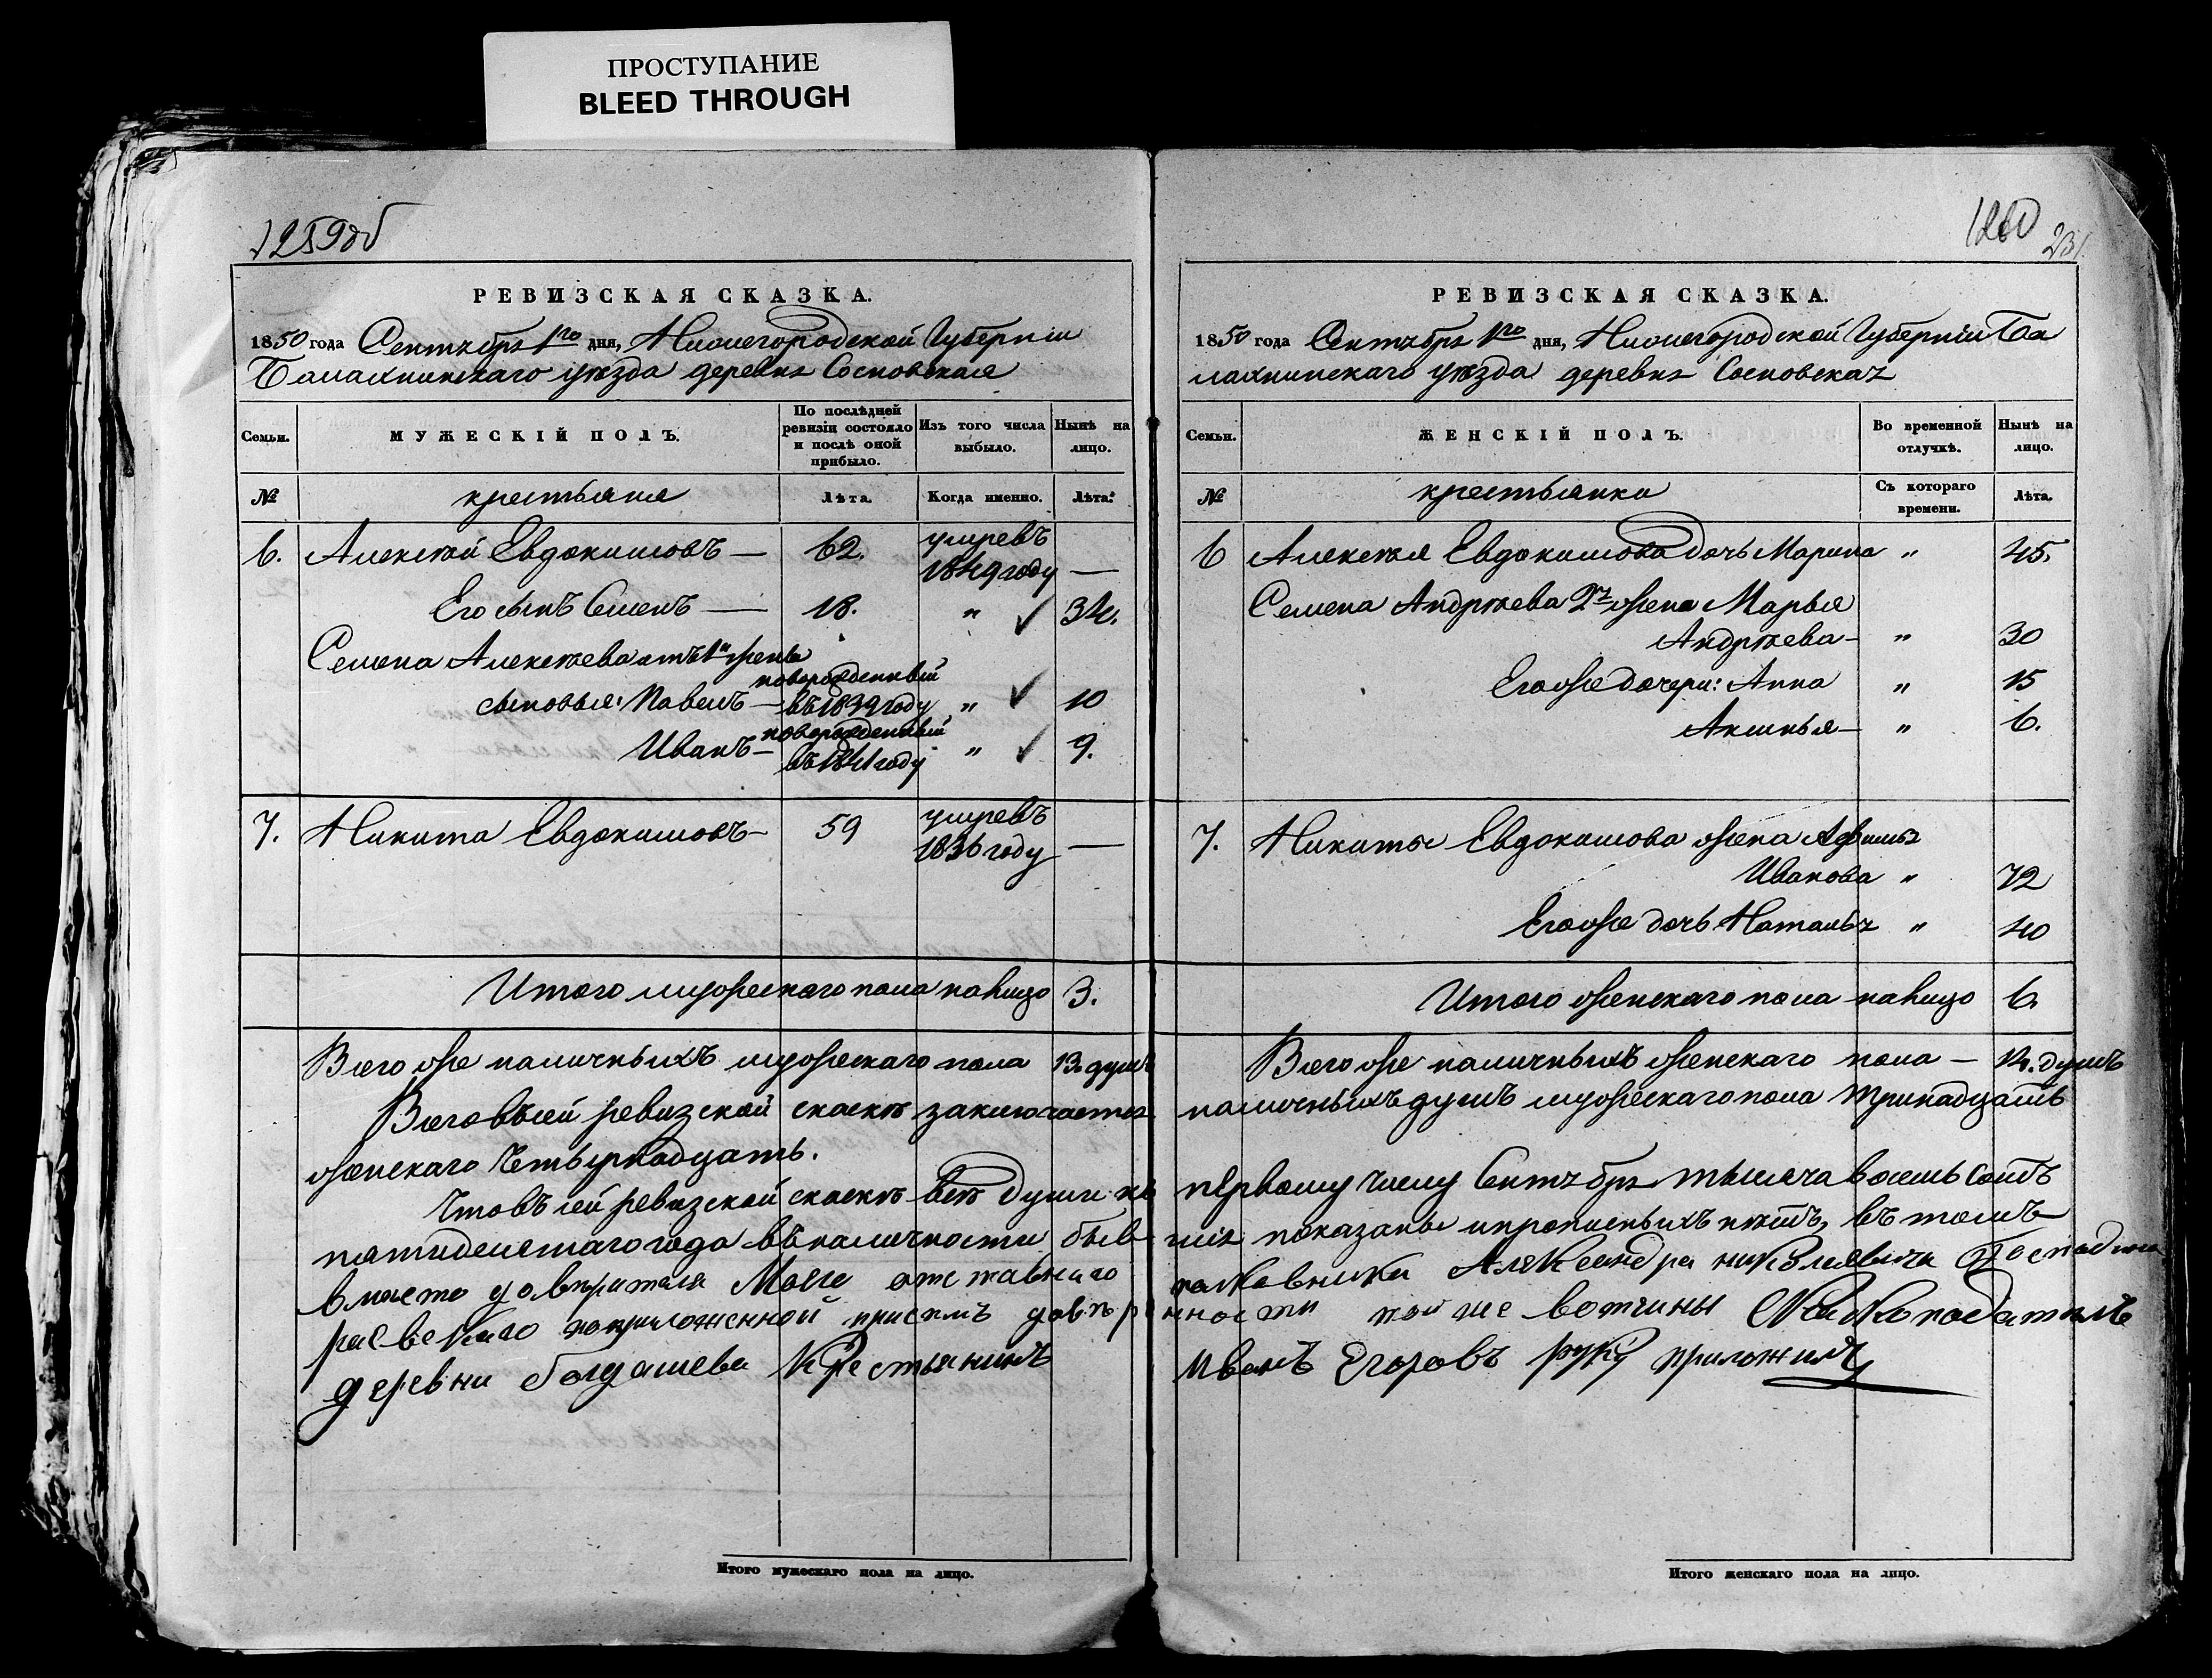 ПРОСТУПАНИЕ
BLEED THROUGH
1259об
РЕВИЗСКАЯ СКАЗКА.
1850 года Сентября 1го дня, Нижегородской Губерніи
Балахнинскаго уѣзда деревня Сосновская
Семьи.
МУЖЕСКІЙ ПОЛЪ.
По послѣдней ревизіи состояло и послѣ оной прибыло.
Изъ того числа выбыло.
Нынѣ на лицо.
№
крестьяне
Лѣта.
Когда именно.
Лѣта.
6. Алексѣй Евдокимовъ — 62. умревъ
1849 году —
Его сынъ Семенъ — 18. „ 34.
Семена Алексѣева отъ 1й жены
сыновья: Павелъ — новорожденный въ 1839 году „ 10
Иванъ — новорожденный въ 1841 году „ 9.
7. Никита Евдокимовъ — 59 умревъ
1836 году —
Итого мужескаго пола на лицо 3.
Всего же наличныхъ мужескаго пола 13. душъ
Всего въ сей ревизской сказкѣ заключается
женскаго четырнадцать.
Что въ сей ревизской сказкѣ всѣ души къ
пятидесятаго года въ наличности быв
вместо доверителя Моего отставнаго
раевскаго поприложенной присемъ доверѣ
деревни болдашева Крестьянинъ
Итого мужескаго пола на лицо.
1260
231.
РЕВИЗСКАЯ СКАЗКА.
1850 года Сентября 1го дня, Нижегородской Губерніи Ба
лахнинскаго уѣзда деревня Сосновская
Семьи.
ЖЕНСКІЙ ПОЛЪ.
Во временной отлучкѣ.
Нынѣ на лицо.
№
крестьянки
Съ котораго времени.
Лѣта.
6 Алексѣя Евдокимова дочь Марина „ 45.
Семена Андрѣева 2я жена Марья
Андрѣева — „ 30
Его же дочери: Анна „ 15
Аксинья — „ 6.
7. Никиты Евдокимова жена Афимья
Иванова „ 72
Его же дочь Наталья „ 40
Итого женскаго пола на лицо 6.
Всего же наличныхъ женскаго пола — 14. душъ
наличныхъ душъ мужескаго пола тринадцать
первому числу Сентября тысяча восемь сотъ
шія показаны и прописныхъ нѣтъ, въ томъ
полковника Александра николаевича Господина
нности той же вотчины
Иванъ Егоровъ руку приложилъ
Итого женскаго пола на лицо.